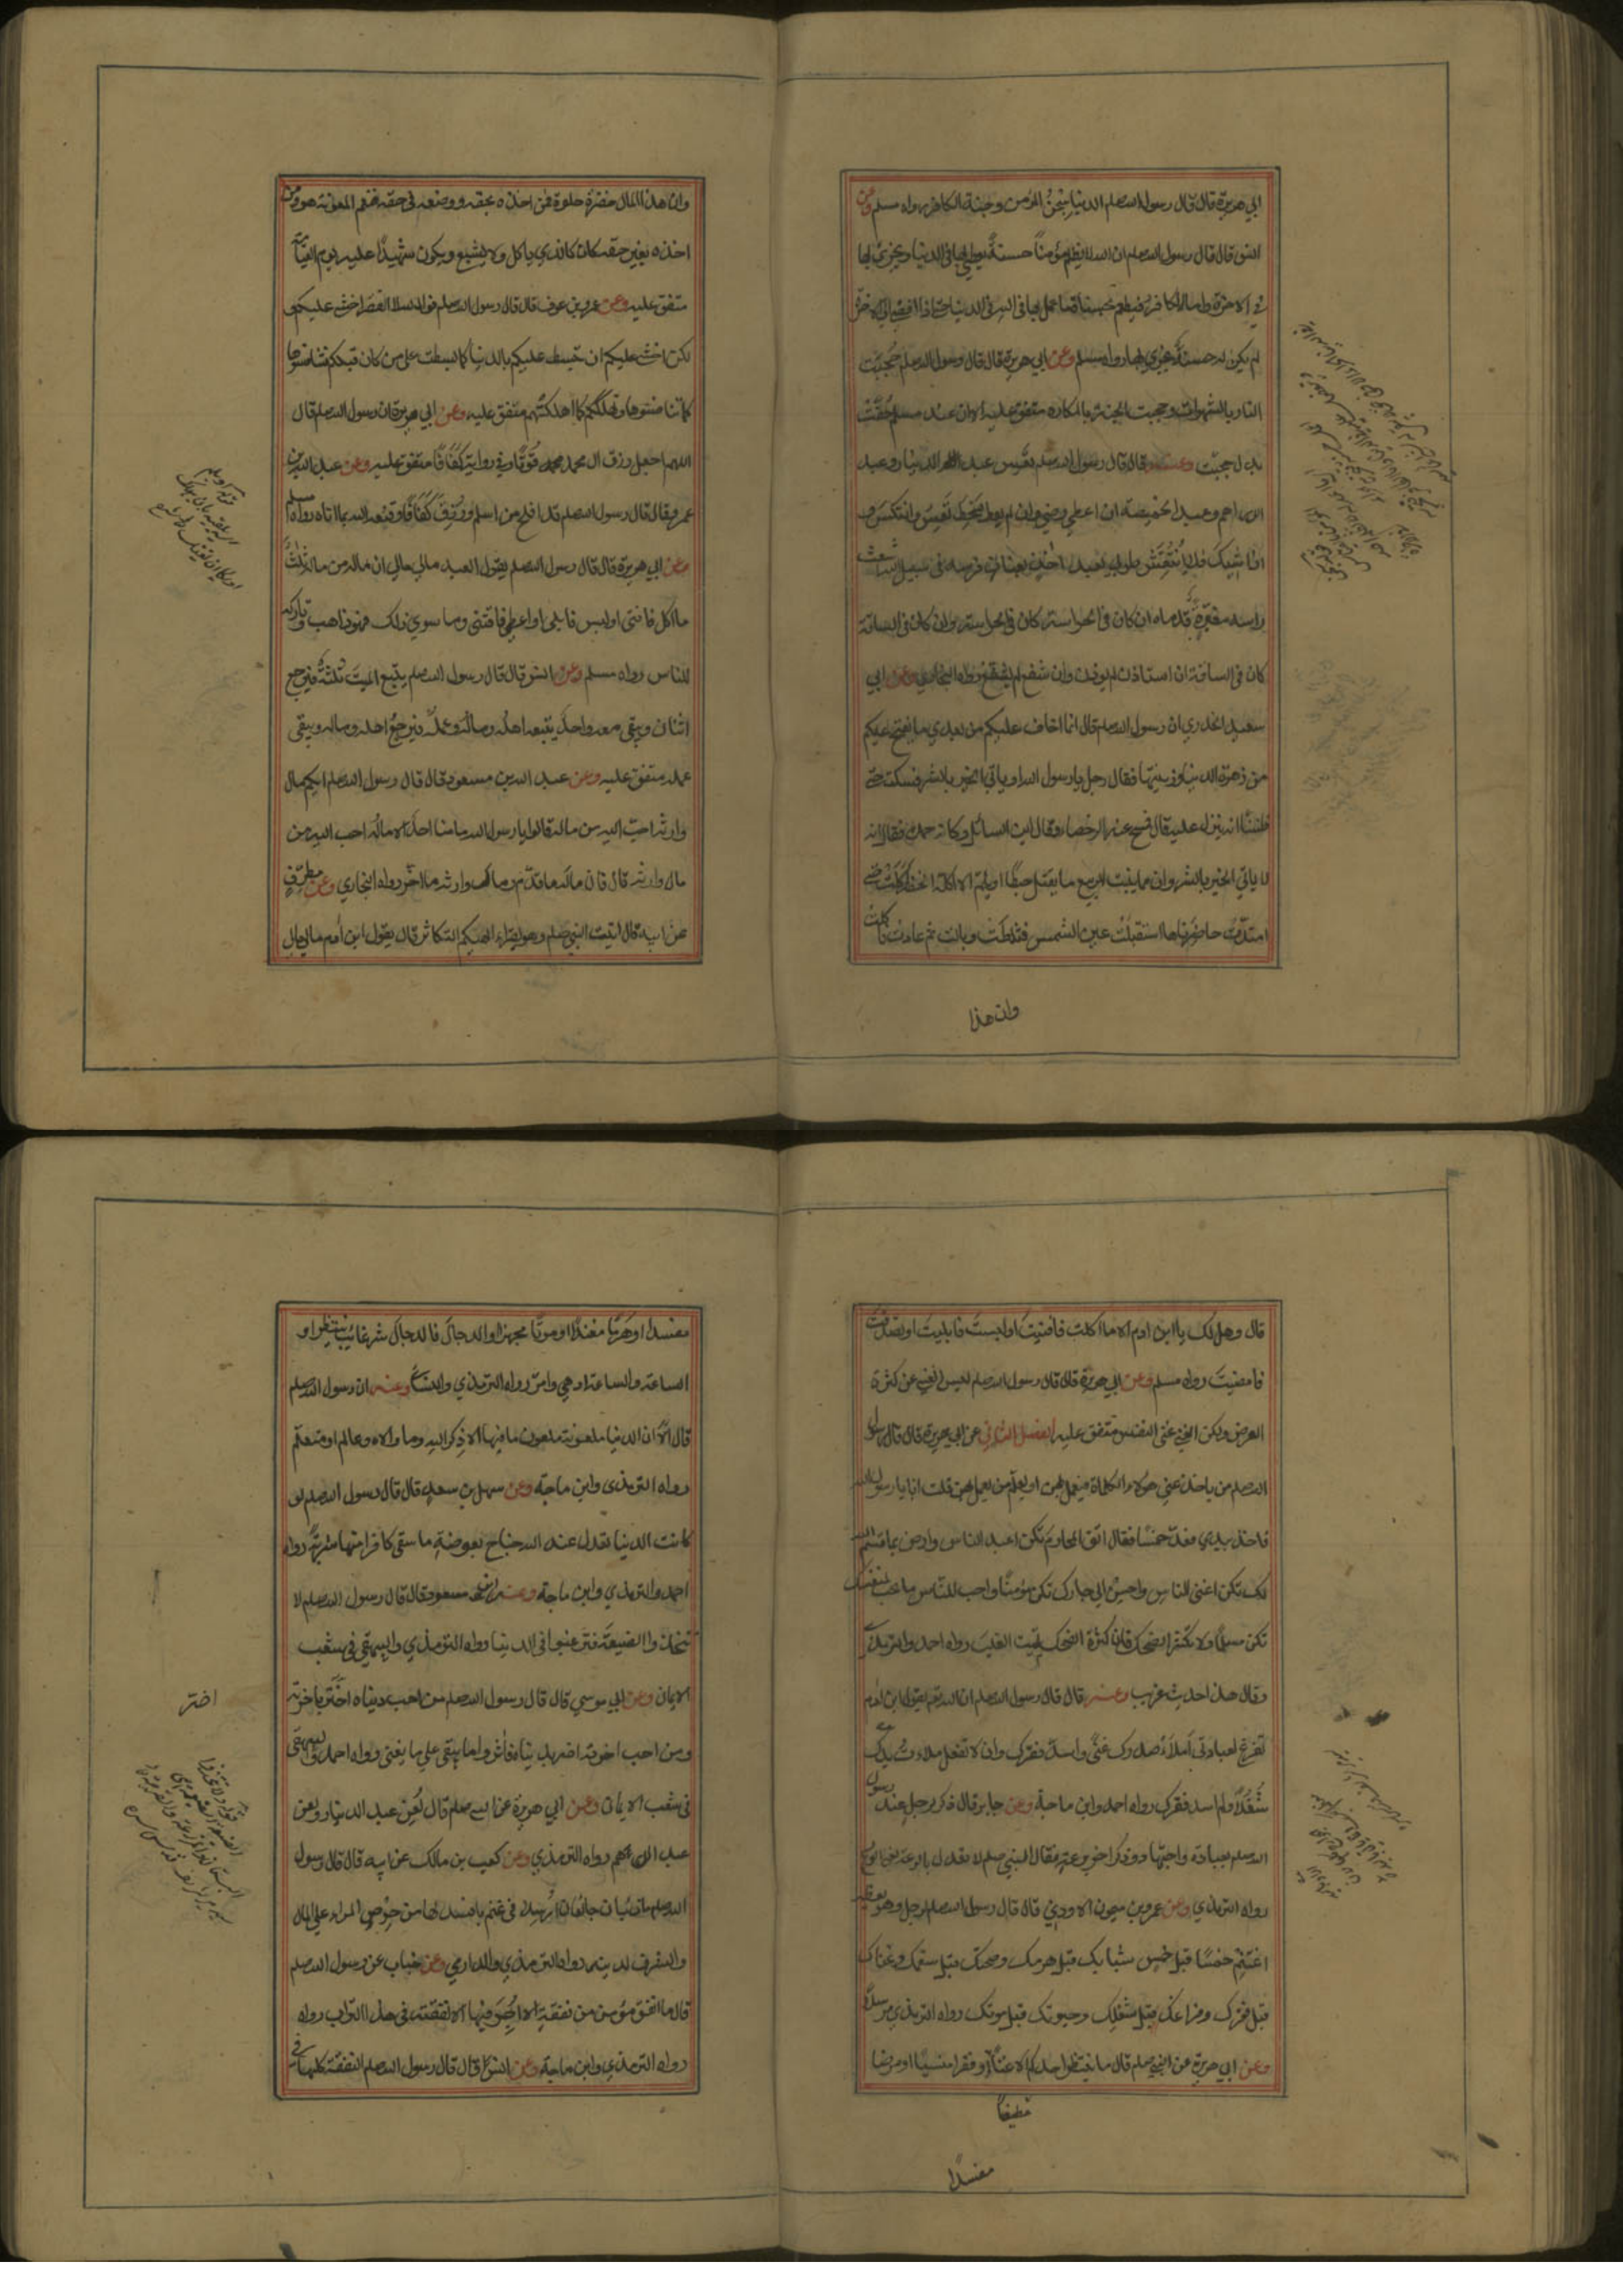 ابي هريرة قال قال رسول الله صلعم الدنيا سجن المؤمن وجنة الكافر رواه مسلم وعن
انس قال قال رسول الله صلعم ان الله لا يظلم مؤمنا حسنةً يعطى بها في الدنيا ويجزى بها
في الاخرة واما الكافر فيطعم بحسنات ما عمل بها في الدنيا حتى اذا افضى الى الاخرة
لم يكن له حسنة يجزى بها رواه مسلم وعن ابي هريرة قال قال رسول الله صلعم حُجِبَت
النار بالشهوات وحجبت الجنة بالمكاره متفق عليه الا ان عند مسلم حُفَّت
بدل حجبت وعنه قال قال رسول الله صلعم تَعِس عبد الدينار وعبد
الدراهم وعبد الخميصة ان اعطي رضي وان لم يعط سخط تَعِسَ وانتكسَ و
اذا شِيكَ فلا انتُقِشَ طوبى لعبد اخذ بعنان فرسه في سبيل الله اشعث
راسه مغبرةٍ قدماه ان كان في الحراسة كان في الحراسة وان كان في الساقة
كان في الساقة ان استاذن لم يوذن وان شفع لم يشفع رواه البخاري وعن ابي
سعيد الخدري ان رسول الله صلعم قال انما اخاف عليكم من بعدي ما يفتح عليكم
من زهرة الدنيا وزينتها فقال رجل يا رسول الله او ياتي الخير بالشر فسكت حتى
ظننّا انه ينزل عليه قال فمسح عنه الرحضاء وقال اين السائل وكانه حمده فقال انه
لا ياتي الخير بالشر وان مما ينبت الربيع ما يقتل حبطًا او يلم الا اكلة الخضر اكلت حتى
امتدّت خاصرتاها استقبلت عين الشمس فثلطت وبالت ثم عادت فاكلت
وان هذا
وان هذا المال خضرة حلوة فمن اخذه بحقه ووضعه في حقه فنعم المعونة هو ومن
اخذه بغير حقه كان كالذي ياكل ولا يشبع ويكون شهيدًا عليه يوم القيامة
متفق عليه وعن عمرو بن عوف قال قال رسول الله صلعم فوالله لا الفقر اخشى عليكم و
لكن اخشى عليكم ان تبسط عليكم بالدنيا كما بسطت على من كان قبلكم فتنافسوها
كما تنافسوها وتهلككم كما اهلكتهم متفق عليه وعن ابي هريرة ان رسول الله صلعم قال
اللهم اجعل رزق ال محمد قوتًا وفي رواية كفافًا متفق عليه وعن عبد الله بن
عمرو قال قال رسول الله صلعم قد افلح من اسلم ورُزِقَ كَفَافًا وقنعه الله بما اتاه رواه مسلم
وعن ابي هريرة قال قال رسول الله صلعم يقول العبد مالي مالي ان ماله من ماله ثلثٌ
ما اكل فافنى او لبس فابلى او اعطى فاقتنى وما سوى ذلك فهو ذاهب وتاركه
للناس رواه مسلم وعن انس قال قال رسول الله صلعم يتبع الميتَ ثلثةٌ فيرجع
اثنان ويبقى معه واحد يتبعه اهله وماله وعمله فيرجع اهله وماله ويبقى
عمله متفق عليه وعن عبد الله بن مسعود قال قال رسول الله صلعم ايكم مال
وارثه احب اليه من ماله قالوا يا رسول الله ما منا احد الا ماله احب اليه من
مال وارثه قال فان ماله ما قدّم ومال وارثه ما اخّر رواه البخاري وعن مطرّفٍ
عن ابيه قال اتيت النبي صلعم وهو يقراء الهيكم التكاثر قال يقول ابن ادم مالي مالي
قال وهل لك يا ابن ادم الا ما اكلت فافنيت او لبست فابليت او تصدقت
فامضيت رواه مسلم وعن ابي هريرة قال قال رسول الله صلعم ليس الغنى عن كثرة
العرض ولكن الغنى غنى النفس متفق عليه الفصل الثاني عن ابي هريرة قال قال رسول
الله صلعم من ياخذ عني هولاء الكلمات فيعمل بهن او يعلّم من يعمل بهن قلت انا يا رسول الله
فاخذ بيدي فعدّ خمسًا فقال اتق المحارم تكن اعبد الناس وارض بما قسم الله
لك تكن اغنى الناس واحسن الى جارك تكن مؤمنًا واحب للناس ما تحب لنفسك
تكن مسلمًا ولا تكثر الضحك فان كثرة الضحك تميت القلب رواه احمد والترمذي
وقال هذا حديث غريب وعنه قال قال رسول الله صلعم ان الله يقول ابن ادم
تفرغ لعبادتي املأ صدرك غنًى واسدّ فقرك وان لا تفعل ملأت يدك
شُغْلًا ولم اسد فقرك رواه احمد وابن ماجة وعن جابر قال ذكر رجل عند رسول
الله صلعم بعبادة واجتهاد وذكر اخر برعة فقال النبي صلعم لا تعدل بالرعة يعني الورع
رواه الترمذي وعن عمرو بن ميمون الاودي قال قال رسول الله صلعم لرجل وهو يعظه
اغتنم خمسًا قبل خمس شبابك قبل هرمك وصحتك قبل سقمك وغناك
قبل فقرك وفراغك قبل شغلك وحيوتك قبل موتك رواه الترمذي مرسلًا
وعن ابي هريرة عن النبي صلعم قال ما ينتظر احدكم الا غنًا او فقرا منسيًا او مرضا
مفسدًا
مفسدا او هَرَمًا مفندًا او موتًا مجهزا او الدجال فالدجال شر غائب ينتظر او
الساعة والساعة ادهى وامر رواه الترمذي والنسائي وعنه ان رسول الله صلعم
قال الا ان الدنيا ملعونة ملعون ما فيها الا ذكر الله وما والاه وعالم او متعلم
رواه الترمذى وابن ماجة وعن سهل بن سعد قال قال رسول الله صلعم لو
كانت الدنيا تعدل عند الله جناح بعوضة ما سقى كافرا منها شربةً رواه
احمد والترمذي وابن ماجة وعن ابن مسعود قال قال رسول الله صلعم لا
تتخذوا الضيعة فترغبوا في الدنيا رواه الترمذي والبيهقي في شعب
الايمان وعن ابي موسى قال قال رسول الله صلعم من احب دنياه اضر باخرته
ومن احب اخرته اضر بدنياه فاثروا ما يبقى على ما يفنى رواه احمد والبيهقى
في شعب الايمان وعن ابي هريرة عن النبي صلعم قال لُعِن عبد الدينار ولعن
عبد الدرهم رواه الترمذي وعن كعب بن مالك عن ابيه قال قال رسول
الله صلعم ما ذئبان جائعان ارسلا في غنم بافسد لها من حرص المرء على المال
والشرف لدينه رواه الترمذي والدارمي وعن خباب عن رسول الله صلعم
قال ما انفق مؤمن من نفقة الا اُجِرَ فيها الا نفقته في هذا التراب رواه
رواه الترمذي وابن ماجة وعن انس قال قال رسول الله صلعم النفقة كلها في